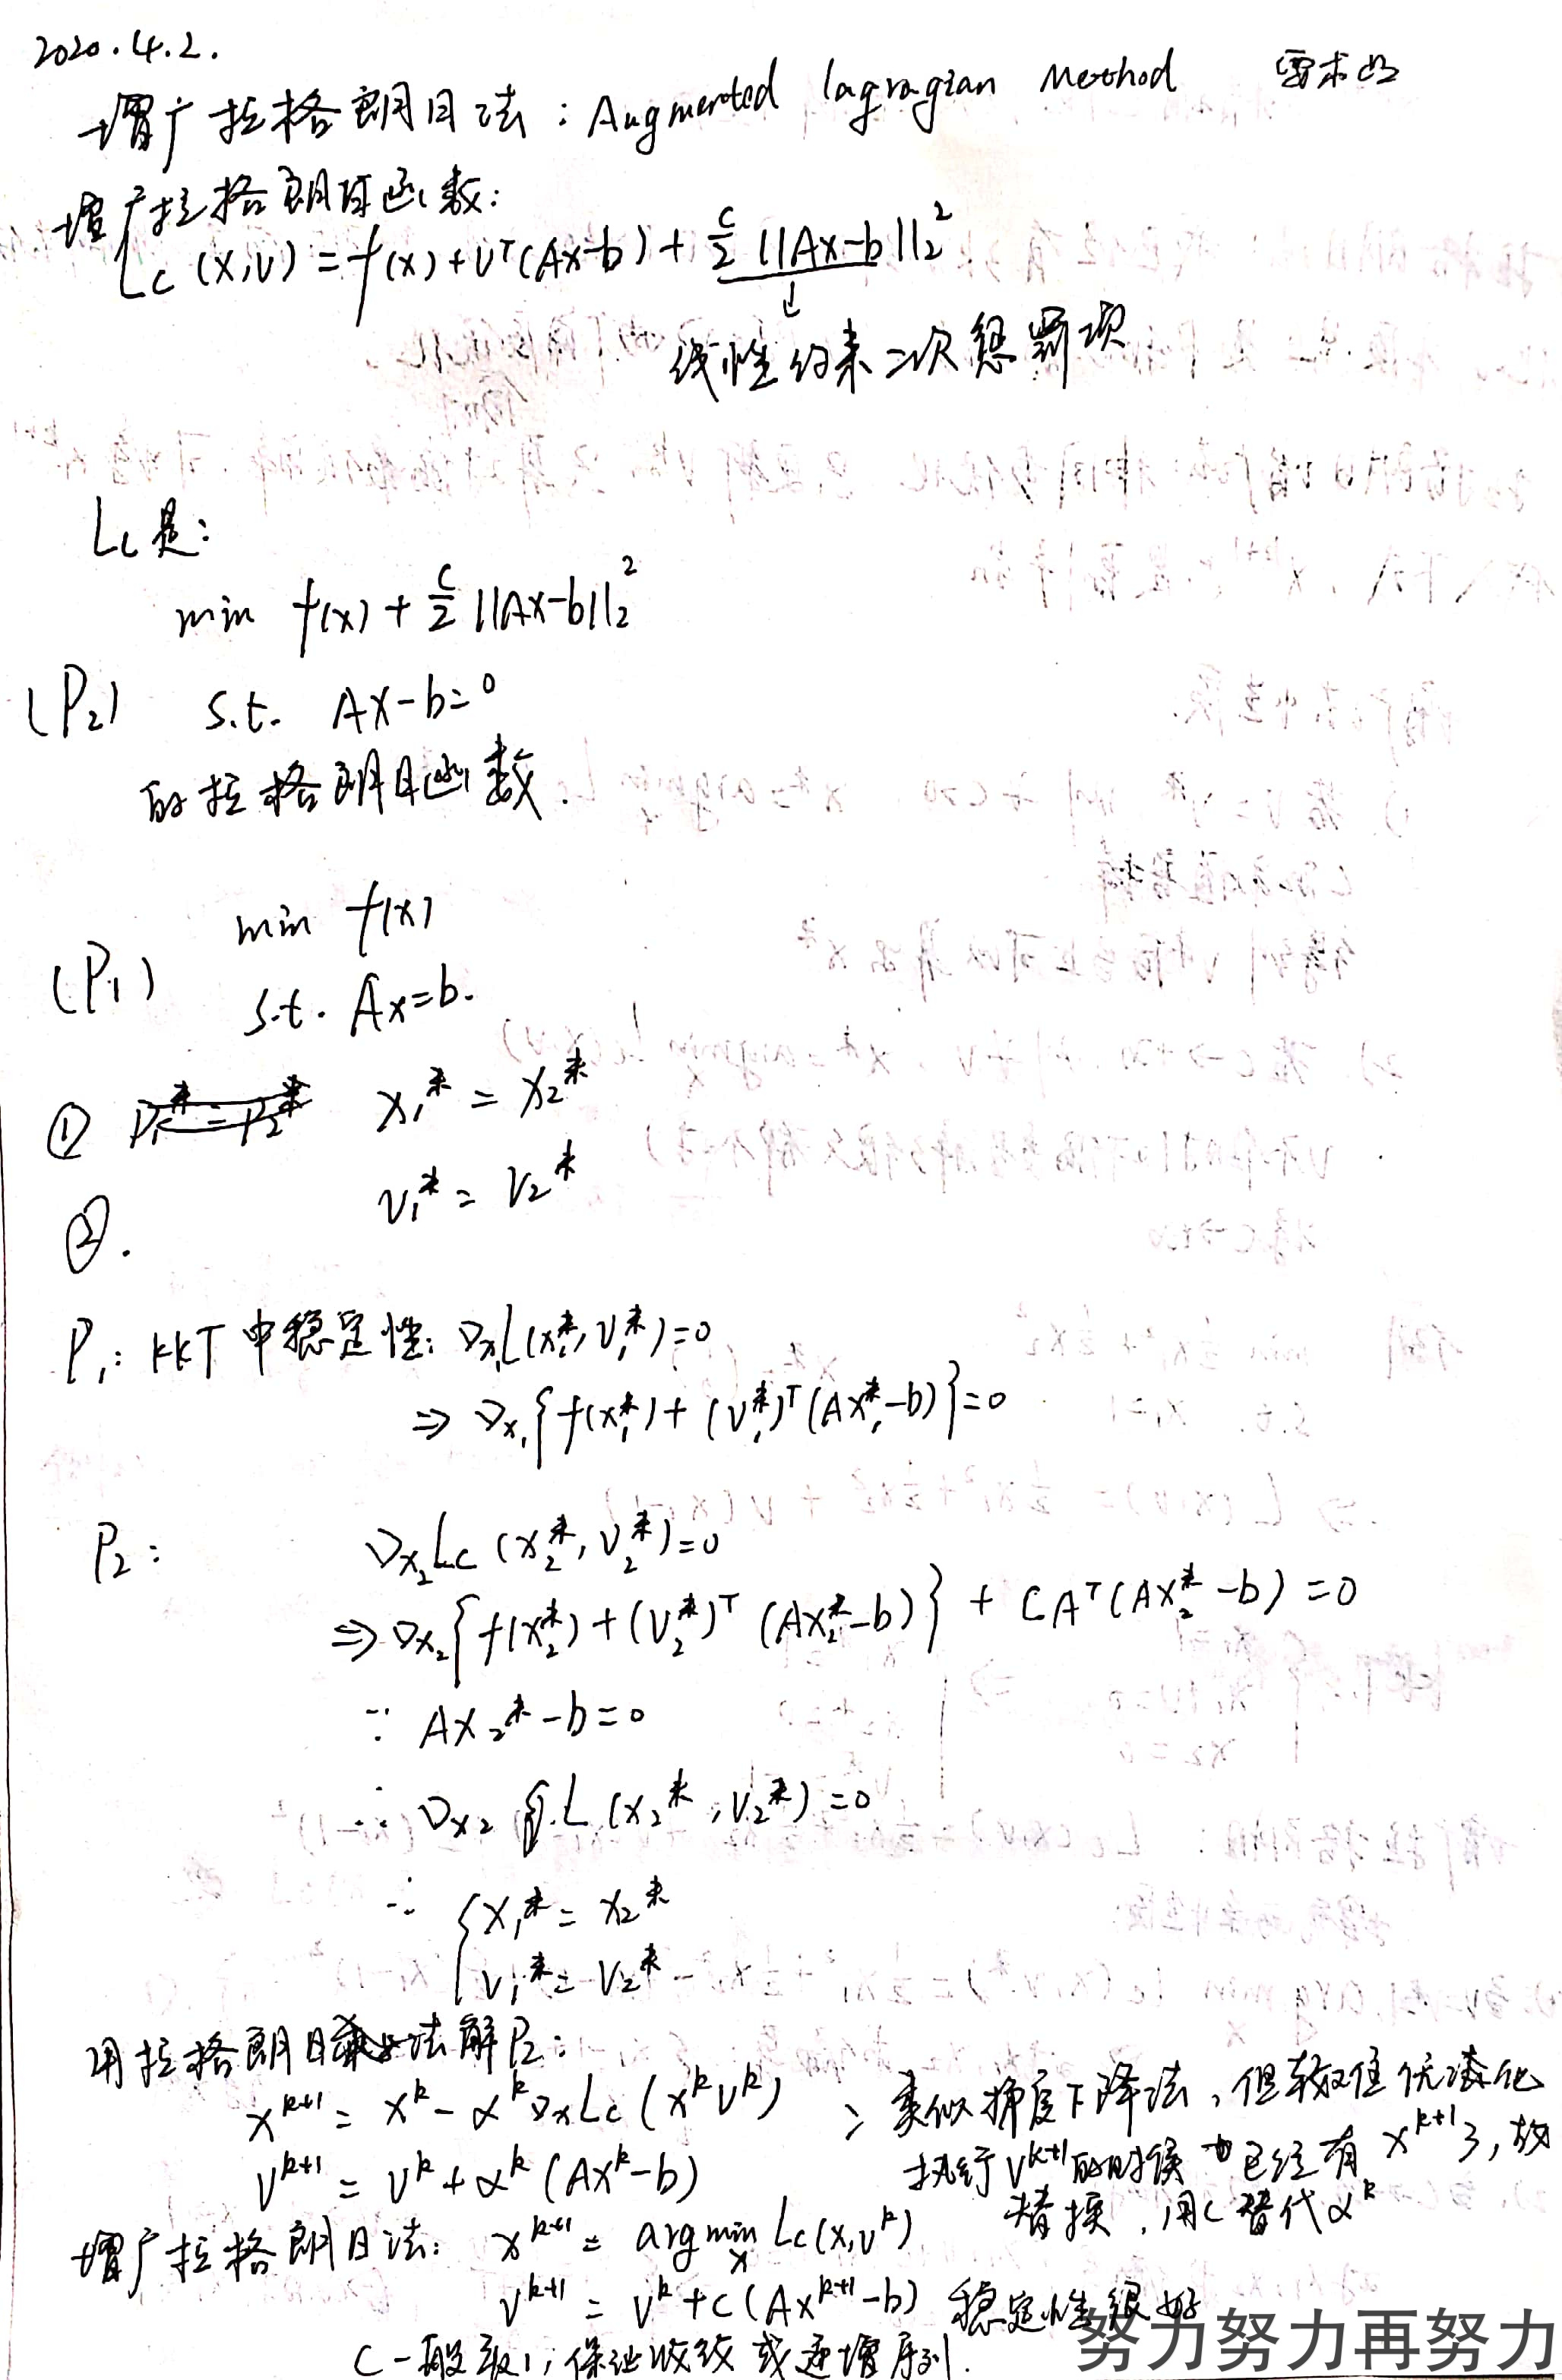 2020.4.2.
增广拉格朗日法：Augmented lagragian Method 要求凸
增广拉格朗日函数：
Lc(x,v) = f(x) + vᵀ(Ax-b) + c/2 ||Ax-b||₂²
↓
线性约束二次惩罚项
Lc是：
min f(x) + c/2 ||Ax-b||₂²
(P₂) s.t. Ax-b=0
的拉格朗日函数.
min f(x)
(P₁)
s.t. Ax=b.
① P₁*=P₂* x₁* = x₂*
v₁* = v₂*
②.
P₁: KKT中稳定性: ∇x₁L(x₁*, v₁*)=0
⇒ ∇x₁{f(x₁*) + (v₁*)ᵀ(Ax₁*-b)}=0
P₂: ∇x₂Lc(x₂*, v₂*)=0
⇒ ∇x₂{f(x₂*) + (v₂*)ᵀ(Ax₂*-b)} + cAᵀ(Ax₂*-b) = 0
∵ Ax₂*-b=0
∴ ∇x₂ L(x₂*, v₂*)=0
∴ {x₁* = x₂*
v₁* = v₂*
用拉格朗日乘子法解P₂：
xᵏ⁺¹ = xᵏ - αᵏ∇xLc(xᵏ vᵏ) 类似梯度下降法，但
vᵏ⁺¹ = vᵏ + αᵏ(Axᵏ-b) 执行vᵏ⁺¹的时候已经有xᵏ⁺¹了，故
替换，用c替代αᵏ
增广拉格朗日法： xᵏ⁺¹ = argminₓ Lc(x,vᵏ)
vᵏ⁺¹ = vᵏ + c(Axᵏ⁺¹-b) 稳定性很好
c一般取1，保证收敛或递增序列.
努力努力再努力